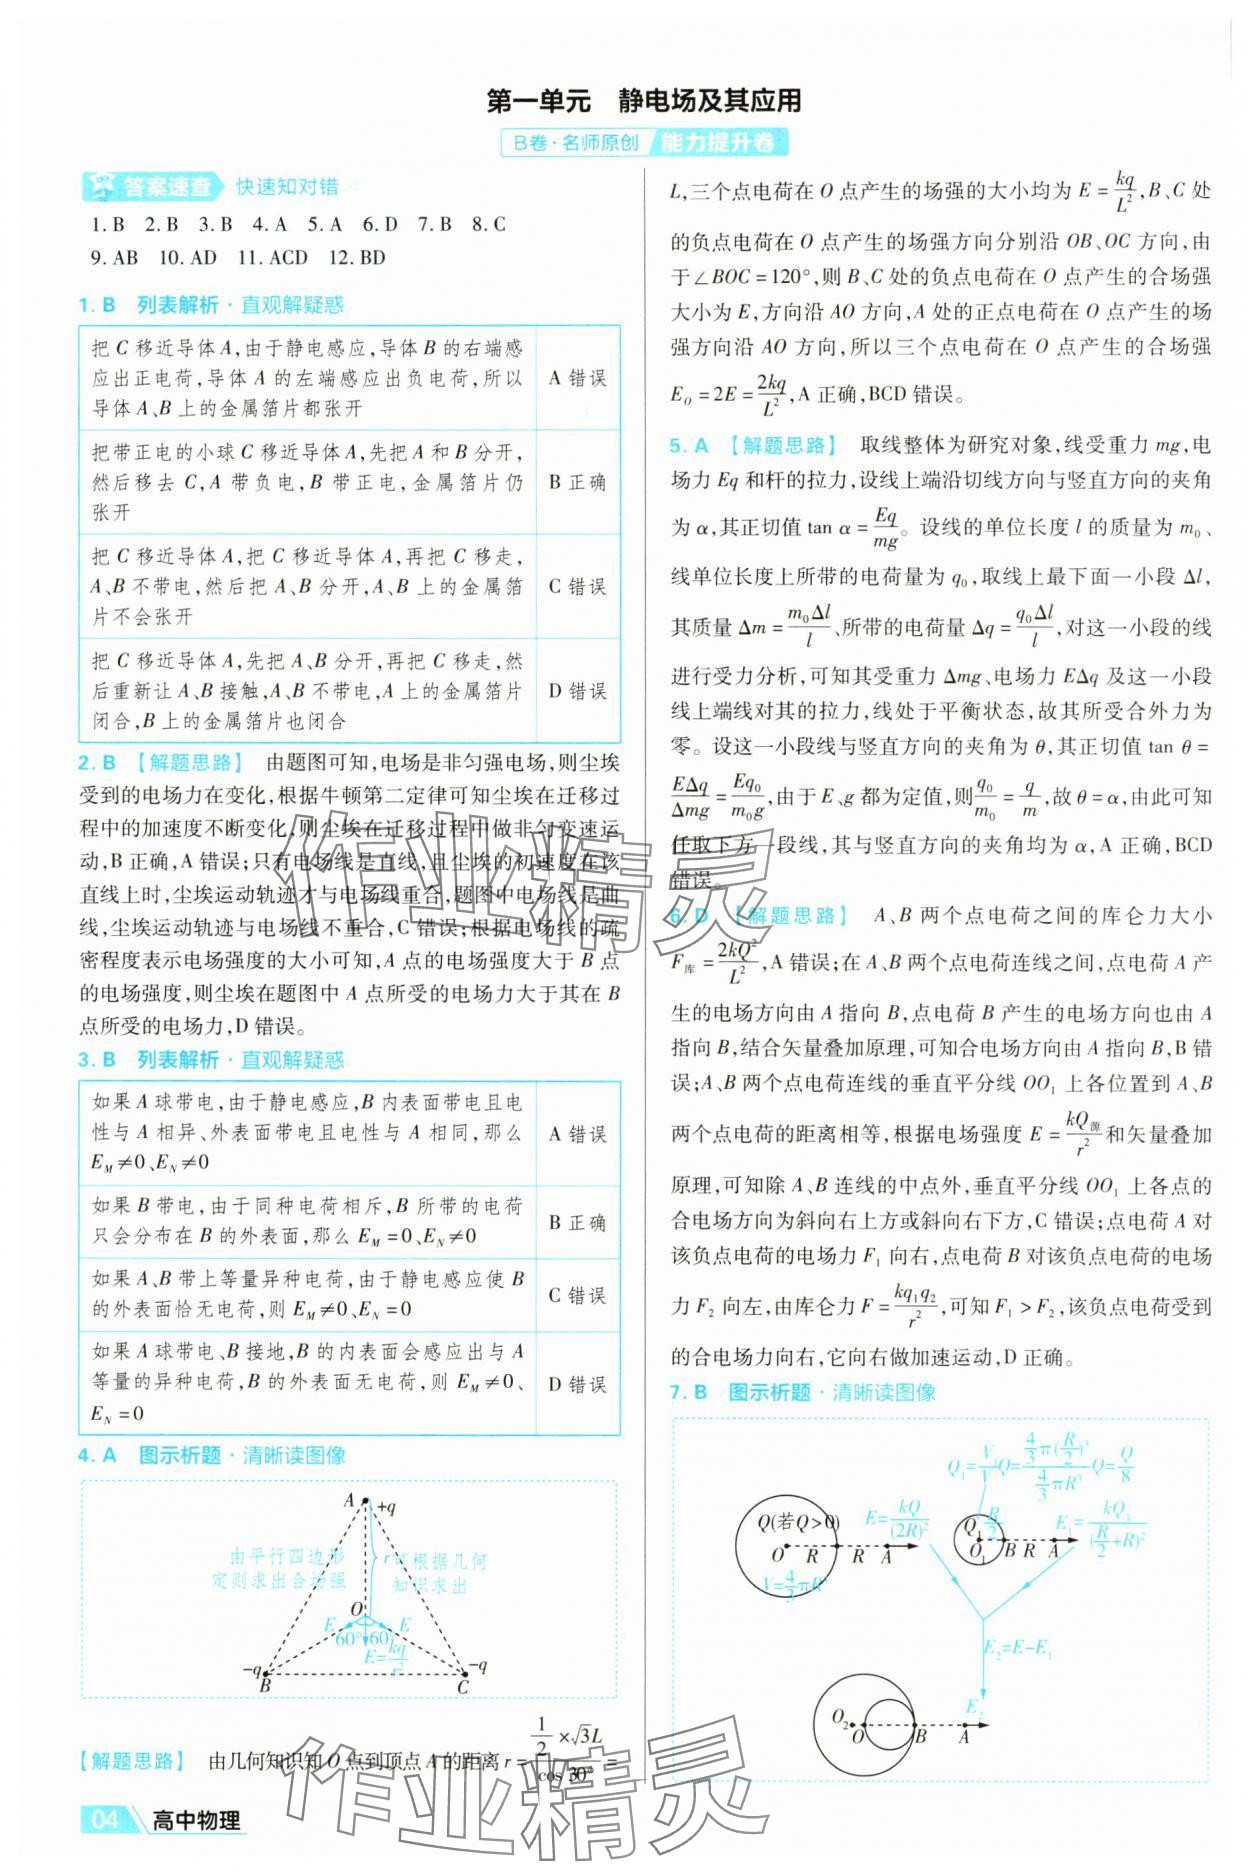 第一单元　静电场及其应用
B卷·名师原创 能力提升卷
答案速查 快速知对错
1. B 2. B 3. B 4. A 5. A 6. D 7. B 8. C
9. AB 10. AD 11. ACD 12. BD
1. B 列表解析·直观解疑惑
把 C 移近导体 A,由于静电感应,导体 B 的右端感
应出正电荷,导体 A 的左端感应出负电荷,所以
导体 A、B 上的金属箔片都张开
A 错误
把带正电的小球 C 移近导体 A,先把 A 和 B 分开,
然后移去 C,A 带负电,B 带正电,金属箔片仍
张开
B 正确
把 C 移近导体 A,把 C 移近导体 A,再把 C 移走,
A、B 不带电,然后把 A、B 分开,A、B 上的金属箔
片不会张开
C 错误
把 C 移近导体 A,先把 A、B 分开,再把 C 移走,然
后重新让 A、B 接触,A、B 不带电,A 上的金属箔片
闭合,B 上的金属箔片也闭合
D 错误
2. B 【解题思路】 由题图可知,电场是非匀强电场,则尘埃
受到的电场力在变化,根据牛顿第二定律可知尘埃在迁移过
程中的加速度不断变化,则尘埃在迁移过程中做非匀变速运
动,B 正确,A 错误;只有电场线是直线,且尘埃的初速度在该
直线上时,尘埃运动轨迹才与电场线重合,题图中电场线是曲
线,尘埃运动轨迹与电场线不重合,C 错误;根据电场线的疏
密程度表示电场强度的大小可知,A 点的电场强度大于 B 点
的电场强度,则尘埃在题图中 A 点所受的电场力大于其在 B
点所受的电场力,D 错误。
3. B 列表解析·直观解疑惑
如果 A 球带电,由于静电感应,B 内表面带电且电
性与 A 相异、外表面带电且电性与 A 相同,那么
E_M≠0、E_N≠0
A 错误
如果 B 带电,由于同种电荷相斥,B 所带的电荷
只会分布在 B 的外表面,那么 E_M=0、E_N≠0
B 正确
如果 A、B 带上等量异种电荷,由于静电感应使 B
的外表面恰无电荷,则 E_M≠0、E_N=0
C 错误
如果 A 球带电、B 接地,B 的内表面会感应出与 A
等量的异种电荷,B 的外表面无电荷,则 E_M≠0、
E_N=0
D 错误
4. A 图示析题·清晰读图像
A +q
由平行四边形
定则求出合场强
r可根据几何
知识求出
O
E E
60° 60°
E=kq/r²
-q B
-q C
【解题思路】 由几何知识知 O 点到顶点 A 的距离 r=(1/2×√3L)/cos 30°=
L,三个点电荷在 O 点产生的场强的大小均为 E=kq/L²,B、C 处
的负点电荷在 O 点产生的场强方向分别沿 OB、OC 方向,由
于∠BOC=120°,则 B、C 处的负点电荷在 O 点产生的合场强
大小为 E,方向沿 AO 方向,A 处的正点电荷在 O 点产生的场
强方向沿 AO 方向,所以三个点电荷在 O 点产生的合场强
E_O=2E=2kq/L²,A 正确,BCD 错误。
5. A 【解题思路】 取线整体为研究对象,线受重力 mg,电
场力 Eq 和杆的拉力,设线上端沿切线方向与竖直方向的夹角
为 α,其正切值 tan α=Eq/mg。设线的单位长度 l 的质量为 m₀、
线单位长度上所带的电荷量为 q₀,取线上最下面一小段 Δl,
其质量 Δm=m₀Δl/l、所带的电荷量 Δq=q₀Δl/l,对这一小段的线
进行受力分析,可知其受重力 Δmg、电场力 EΔq 及这一小段
线上端线对其的拉力,线处于平衡状态,故其所受合外力为
零。设这一小段线与竖直方向的夹角为 θ,其正切值 tan θ=
EΔq/Δmg=Eq₀/m₀g,由于 E、g 都为定值,则q₀/m₀=q/m,故 θ=α,由此可知
任取下方一段线,其与竖直方向的夹角均为 α,A 正确,BCD
错误。
6. D 【解题思路】 A、B 两个点电荷之间的库仑力大小
F库=2kQ²/L²,A 错误;在 A、B 两个点电荷连线之间,点电荷 A 产
生的电场方向由 A 指向 B,点电荷 B 产生的电场方向也由 A
指向 B,结合矢量叠加原理,可知合电场方向由 A 指向 B,B 错
误;A、B 两个点电荷连线的垂直平分线 OO₁ 上各位置到 A、B
两个点电荷的距离相等,根据电场强度 E=kQ源/r²和矢量叠加
原理,可知除 A、B 连线的中点外,垂直平分线 OO₁ 上各点的
合电场方向为斜向右上方或斜向右下方,C 错误;点电荷 A 对
该负点电荷的电场力 F₁ 向右,点电荷 B 对该负点电荷的电场
力 F₂ 向左,由库仑力 F=kq₁q₂/r²,可知 F₁>F₂,该负点电荷受到
的合电场力向右,它向右做加速运动,D 正确。
7. B 图示析题·清晰读图像
Q₁=V₁/V Q=(4/3π(R/2)³)/(4/3πR³) Q=Q/8
Q(若Q>0) E=kQ/(2R)²
O R R A
V=4/3πR³
Q₁ R/2 E₁=kQ₁/(R/2+R)²
O₁ B R A
E₂=E-E₁
E₂
O₂ O B A
04 高中物理
作业精灵
作业精灵